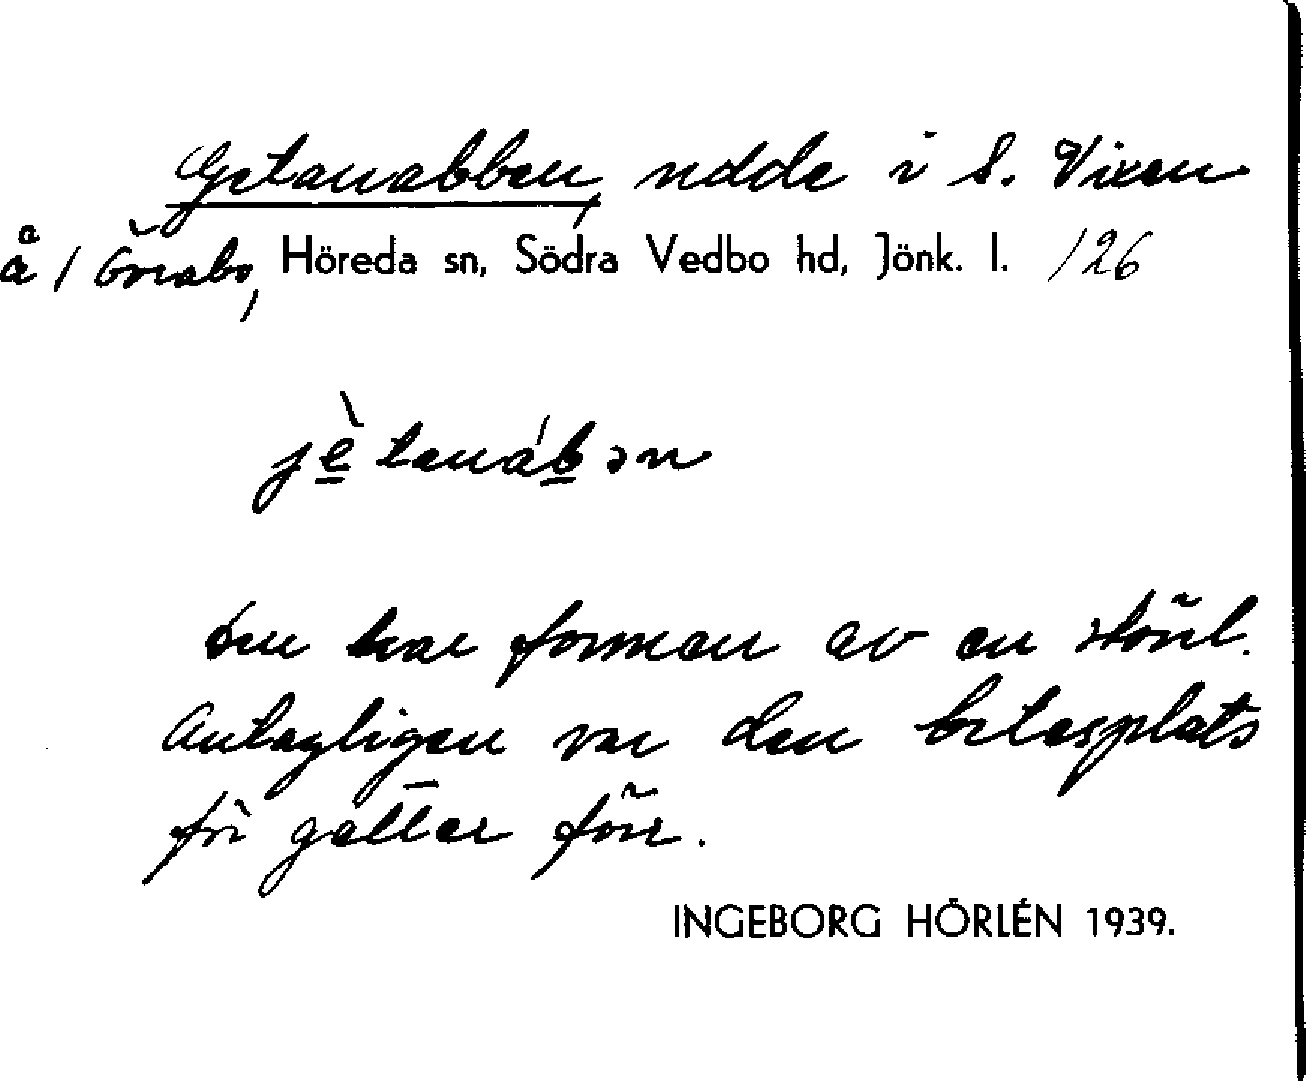 Getanabben, udde i S. Vixen
å / Örsabo, Höreda sn, Södra Vedbo hd, Jönk. l. /26
jètanábən
Den har formen av en stövel.
Antagligen var den betesplats
för getter förr.
INGEBORG HÖRLÉN 1939.